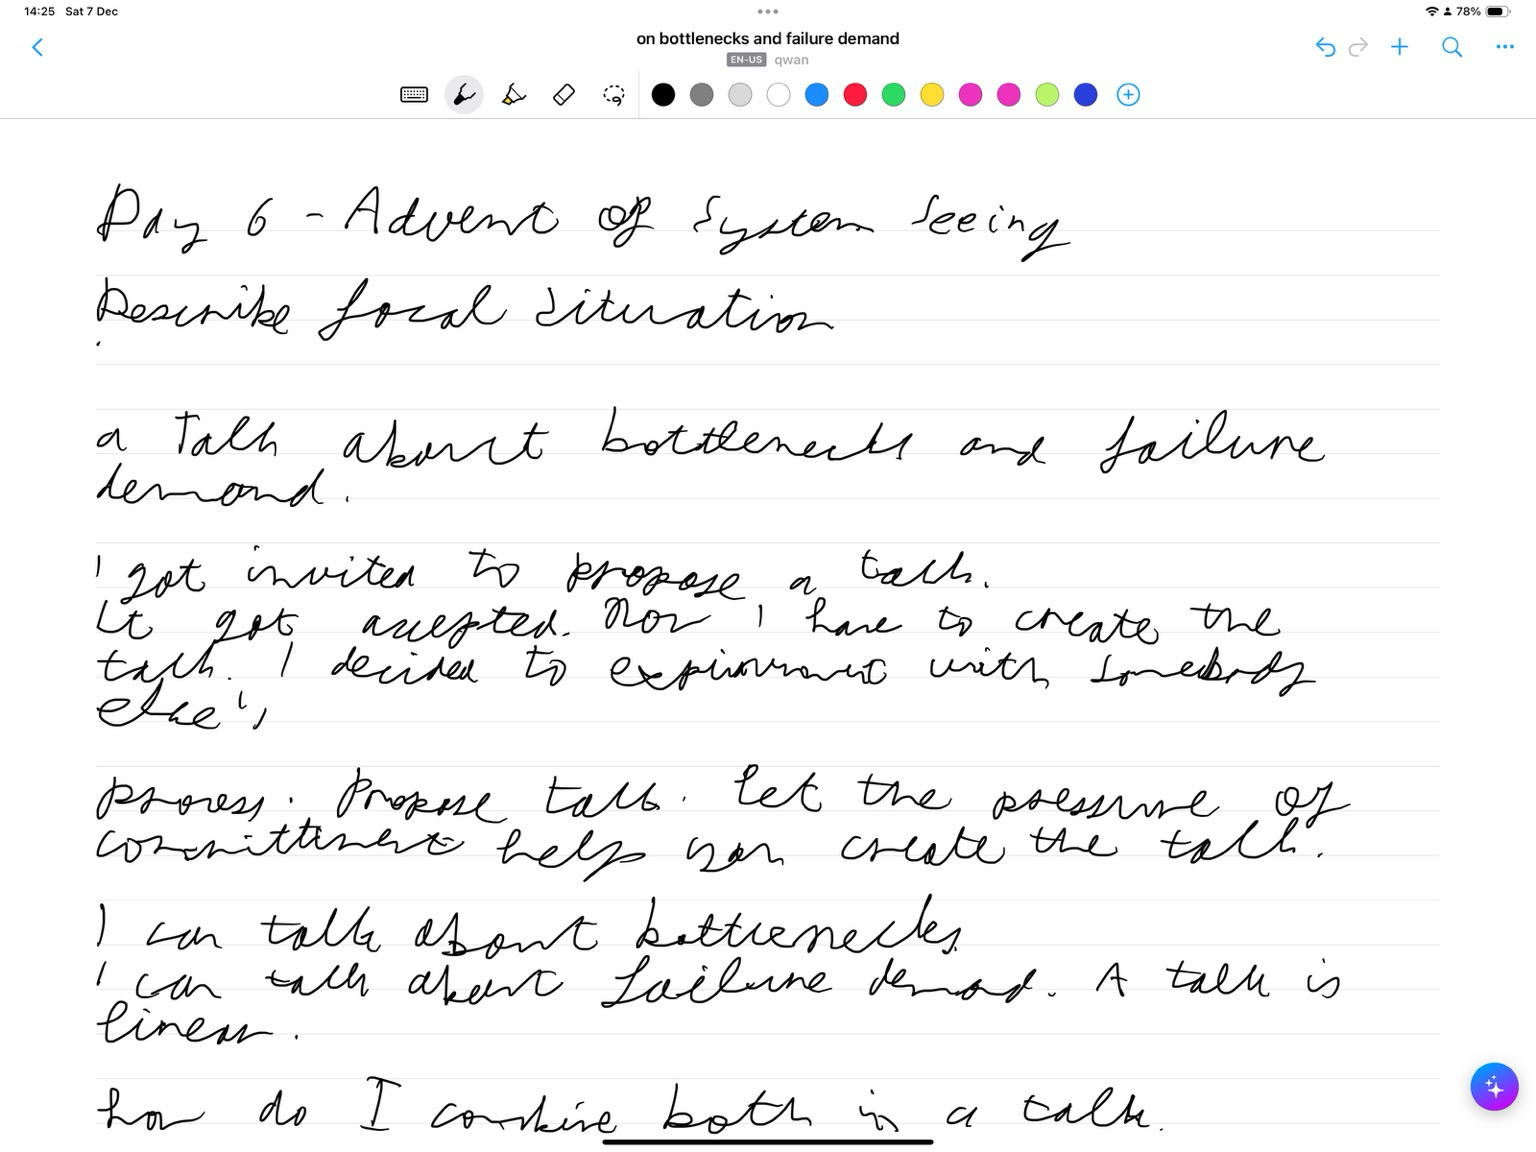 14:25 Sat 7 Dec
78%
on bottlenecks and failure demand
EN-US qwan
Day 6 - Advent of System Seeing
Describe focal situation
a Talk about bottlenecks and failure
demand.
I got invited to propose a talk.
It got accepted. Now I have to create the
talk. I decided to experiment with somebody
else's
process. Propose talk. Let the pressure of
committment help you create the talk.
I can talk about bottlenecks.
I can talk about failure demand. A talk is
linear.
how do I combine both in a talk.